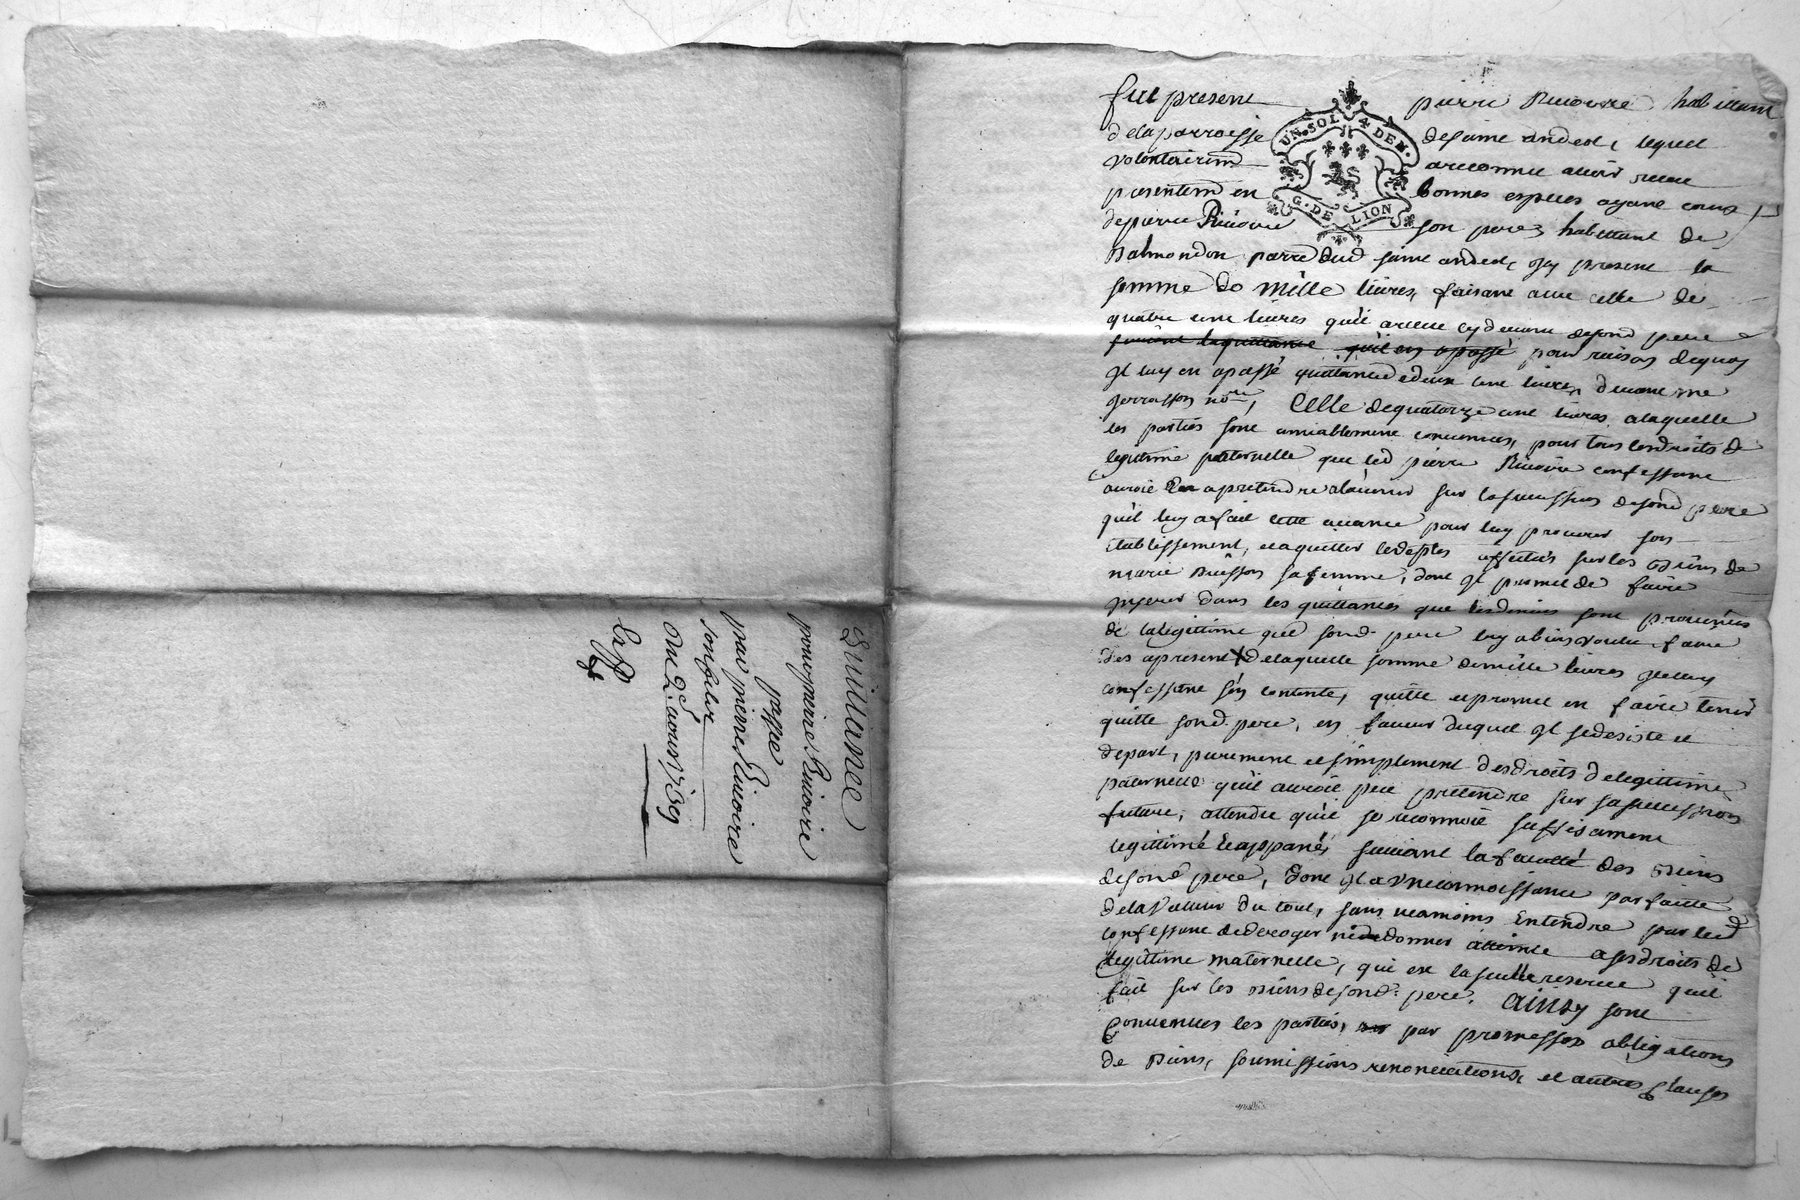 Quittance
pour pierre Rivoire
passée
par pierre Rivoire
son fils
du 2e aoust 1769
Exp
UN.SOL 4 DEN.
G.DE LION
fut present pierre Rivoire habittant
de la parroisse de saint andeol, lequel
volontairemt a reconnu avoir receu
presentemt en bonnes especes ayant cours
de pierre Rivoire son pere, habittant de
parre dud saint andeol, Icy present la
somme de mille livres, faisant avec celle de
quatre cent livres qu'il a receu cy devant desond pere
suivant la quittance qu'il en a passé pour raison dequoy
Il luy en a passé quittance de deux cent livres, devant me
nore, Celle de quatorze cent livres a laquelle
les parties sont amiablement convenues, pour tous les droits de
legitime paternelle que led pierre Rivoire confessant
auroit a pretendre a lavenir sur la succession desond pere
qu'il luy a fait cette avance pour luy procurer son
Etablissement, et aquitter les deptes affectés sur les biens de
marie Buisson sa femme, dont Il promet de faire
Inserer dans les quittances que les deniers sont provenus
de la legittime que sond. pere luy a bien voulu faire
des apresent X de laquelle somme de mille livres
confessant s'en contente, quitte et promet en faire tenir
quitte sond. pere, en faveur duquel Il se desiste et
depart, purement et simplement des droits de legittime
paternelle qu'il auroit peu pretendre sur sa succession
future, attendu qu'il se reconnoit suffisament
legittimé et appané, suivant la faculté des biens
desond pere, dont Il a Une connoissance parfaitte
de la Valeur du tout, sans neamoins Entendre par led
confessant de deroger ni donner atteinte a ses droits de
legittime maternelle, qui est la seulle reserve qu'il
fait sur les biens desond. pere. Ainsy sont
Convenues les parties, par promesses obligations
de biens, soumissions renonciations, et autres Clauses